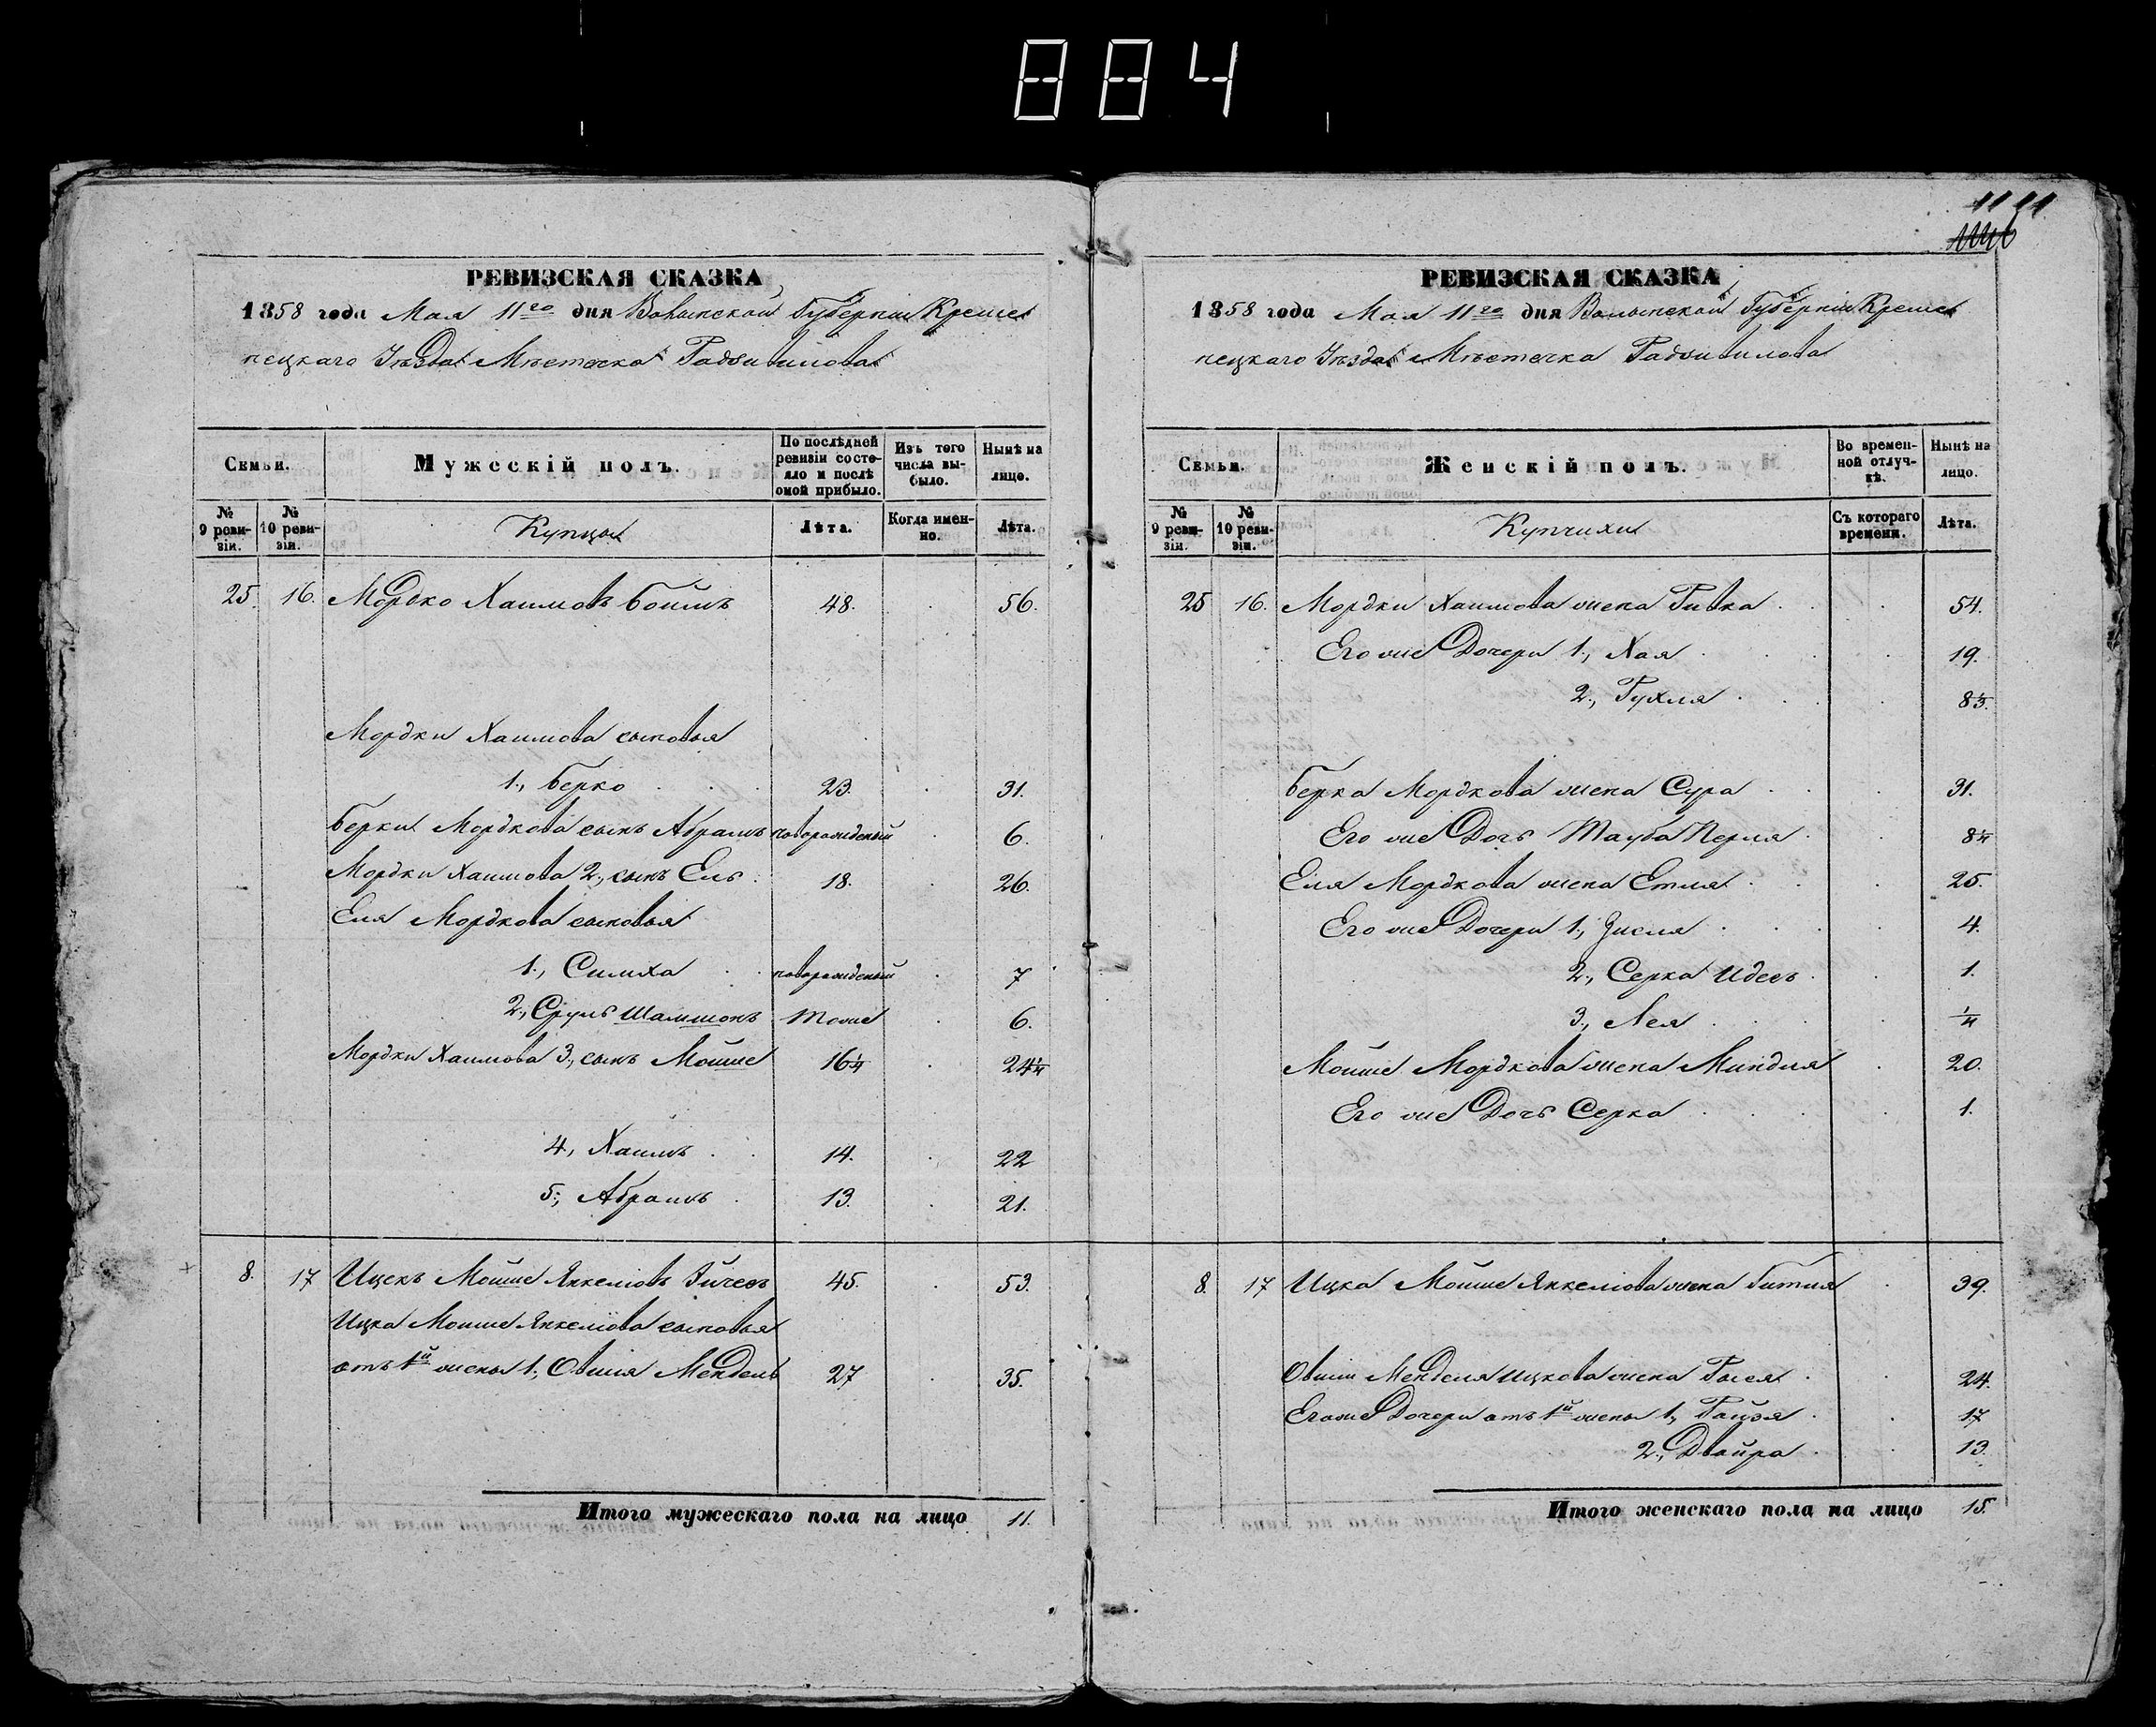 884
1111
РЕВИЗСКАЯ СКАЗКА
1858 года Мая 11го дня Волынской Губерніи Креме-
нецкаго Уѣзда Мѣстечка Радзивилова
Семьи.
Мужескій полъ.
По послѣдней ревизіи состояло и послѣ оной прибыло.
Изъ того числа выбыло.
Нынѣ на лицо.
№ 9 ревизіи.
№ 10 ревизіи.
Купцы
Лѣта.
Когда именно.
Лѣта.
25. 16. Мордко Хаимовъ Боимъ 48. 56.
Мордки Хаимова сыновья
1., Берко 23. 31.
Берки Мордкова сынъ Абрамъ новорожденый 6.
Мордки Хаимова 2., сынъ Ель 18. 26.
Еля Мордкова сыновья
1., Симха новорожденый 7
2., Сруль Шамшонъ тоже 6.
Мордки Хаимова 3., сынъ Мойше 16¼ 24¼
4., Хаимъ 14. 22
5., Абрамъ 13. 21.
8. 17 Ицекъ Мойше Янкеліовъ 45. 53.
Ицка Мойше Янкеліова сыновья
отъ 1й жены 1., Овшія Мендель 27 35.
Итого мужескаго пола на лицо 11.
РЕВИЗСКАЯ СКАЗКА
1858 года Мая 11го дня Волынской Губерніи Креме-
нецкаго Уѣзда Мѣстечка Радзивилова
Семьи.
Женскій полъ.
Во временной отлучкѣ.
Нынѣ на лицо.
№ 9 ревизіи.
№ 10 ревизіи.
Купчихи
Съ котораго времени.
Лѣта.
25 16. Мордки Хаимова жена Ривка 54.
Его же Дочери 1., Хая 19.
2., Рухля 8⅓.
Берка Мордкова жена Сура 31.
Его же Дочь Тауба Перля 8¼
Еля Мордкова жена Етля 25.
Его же Дочери 1., Зисля 4.
2., Серка Идесъ 1.
3., Лея ¼
Мойше Мордкова жена Миндля 20.
Его же Дочь Серка 1.
8. 17 Ицка Мойше Янкеліова жена Гитля 39.
Овшіи Менделя Ицкова жена Рыся 24.
Егоже Дочери отъ 1й жены 1., Райзя 17
2., Двойра 13.
Итого женскаго пола на лицо 15.